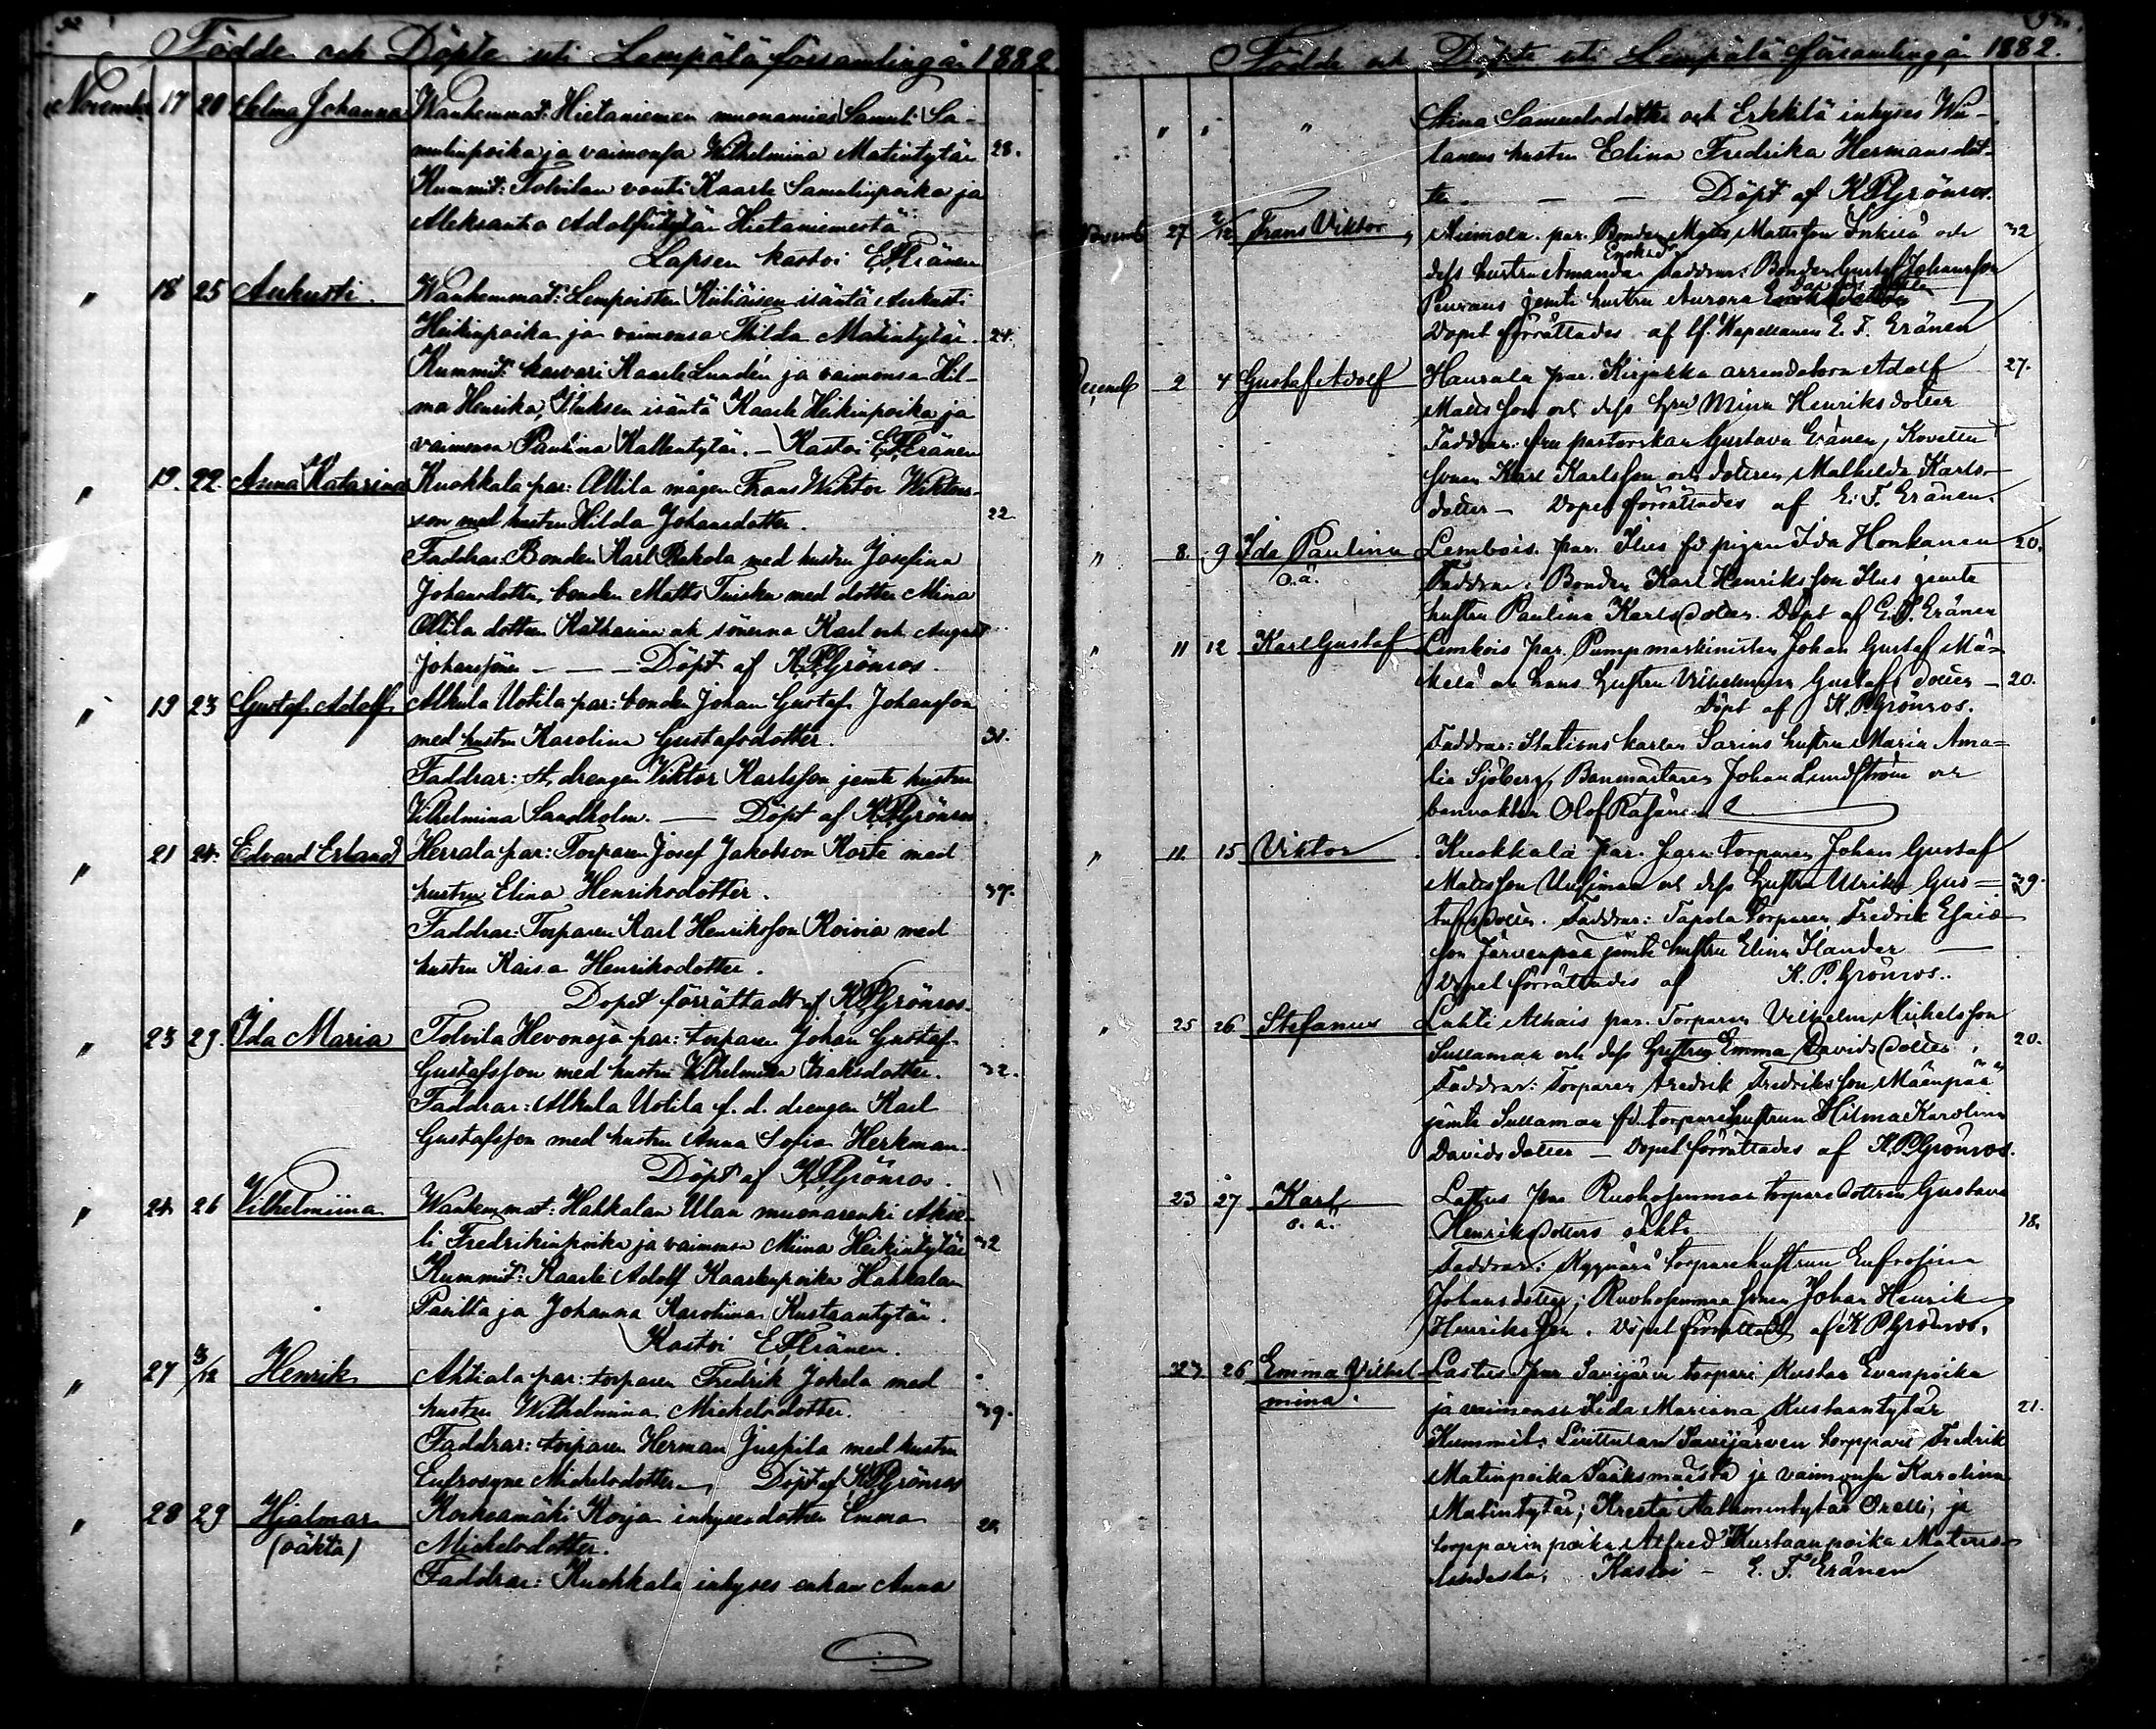 Födde och Döpte uti Lempälä församling år 1882.
November 17 20 Selma Johanna Wanhemmat: Hietaniemen muonamies Samuli Sa-
mulinpoika ja vaimonsa Wilhelmina Matintytär 28.
Kummit: Tolvilan vouti Kaarle Samulinpoika ja
Aleksanta Adolfintytär Hietaniemestä
Lapsen kastoi E.F. Eränen
" 18 25 Aukusti. Wanhemmat: Lempoisten isäntä Aukusti
Heikinpoika ja vaimonsa Hilda Matintytär. 24.
Kummit: Kaarle Lundén ja vaimonsa Hil-
ma Henrika, isäntä Kaarle Heikinpoika ja
vaimonsa Paulina Kallentytär. - Kastoi E.F. Eränen
" 19. 22. Anna Katarina Kuokkala par: Ollila mågen Frans Wiktor Wiktors-
son med hustru Hilda Johansdotter. 22
Faddrar: Bonden Karl Rekola med hustru Josefina
Johansdotter, bonden Matts med dotter Mina
Ollila dottren Katharina och sönerna Karl och August
Johanssöner — — Döpt af K.P. Grönroos.
" 19 23 Gustaf Adolf Alkula Uotila par: bonden Johan Gustaf Johansson
med hustru Karolina Gustafsdotter. 31.
Faddrar: st. drengen Viktor Karlsson jemte hustru
Vilhelmina Sandholm. — Döpt af K.P. Grönroos
" 21 24. Edvard Erland Herrala par: Torparen Josef Jakobson Korte med
hustru Elina Henriksdotter. 37.
Faddrar: Torparen Karl Henriksson Koivia med
hustru Kaisa Henriksdotter.
Dopet förrättadt af K.P. Grönroos.
" 23 29. Ida Maria Tolvila Hevonoja par: torparen Johan Gustaf
Gustafsson med hustru Wilhelmina Isaksdotter. 32.
Faddrar: Alkula Uotila f. d. drengen Karl
Gustafsson med hustru Anna Sofia Herkman.
Döpt af K.P. Grönroos.
" 24 26 Vilhelmiina Wanhemmat: Hakkalan Ulan muonarenki Akse-
li Fredrikinpoika ja vaimonsa Miina Heikintytär 32
Kummit: Kaarle Adolf Kaarlenpoika Hakkalan
ja Johanna Karoliina Kustaantytär.
Kastoi E.F. Eränen.
" 27 3/12 Henrik Ahtiala par: torparen Fredrik Jokela med
hustru Wilhelmina Mickelsdotter. 39.
Faddrar: torparen Herman Juspila med hustru
Eufrosyne Mickelsdotter. Döpt af K.P. Grönroos
" 28 29 Hjalmar Korkeamäki Korja inhysesdotter Emma 20.
(oäkta) Mickelsdotter.
Faddrar: Kuokkala inhyses enkan Anna
Födde och Döpte uti Lempälä församling år 1882.
" " " Stina Samuelsdotter och Erkkilä inhyses Wu-
lanens hustru Elina Fredrika Hermansdot-
ter. — — Döpt af K.P. Grönroos.
Novemb 27 2/12 Frans Viktor, Niemola par. Bonden Matts Mattsson Inkilä och 32
Enoksd:r
dess hustru Amanda Faddrar: Bonden Gustaf Johansson
Davidsdotter
Peurans jemte hustru Aurora
Dopet förrättades af tf. Kapellanen E. F. Eränen
Decemb 2 4 Gustaf Adolf Haurala par. Kirjukka arrendatorn Adolf 27.
Mattsson och dess hru Mina Henriksdotter
Faddrar: fru pastorskan Gustava Eränen,
sonen Karl Karlsson och dottren Mathilda Karls-
dotter — Dopet förrättades af E. F. Eränen.
" 8. 9 Ida Paulina Lembois. par. Ilus fd pigan Ida Honkanen 20.
o.ä. Faddrar: Bonden Karl Henriksson Ilus jemte
hustru Paulina Karlsdotter. Döpt af E. F. Eränen
" 11 12 Karl Gustaf Lembois par. Pumpmaskinisten Johan Gustaf Mä-
kelä och hans hustru Vilhelmina Gustafsdotter — 20.
Döpt af K. P. Grönroos.
Faddrar: Stationskarlen Sarins hustru Maria Ama-
lia Sjöberg, Banmästaren Johan Lundström och
banvakten Olof Räsänen
" 11 15 Viktor Kuokkala par. torparen Johan Gustaf
Mattsson Uusimaa och dess hustru Ulrika Gus- 39.
tafsdotter. Faddrar: Tapola torparen Fredrik Esaias-
son Järvenpää jemte hustru Elina Ilander —
Dopet förrättades af K. P. Grönroos.
" 25 26 Stefanus Lahti Alhais par. Torparen Vilhelm Mickelsson
Sullamaa och dess hustru Emma Davidsdotter. 20.
Faddrar: Torparen Fredrik Fredriksson Mäenpää
jemte Sullamaa fd. torparehustrun Hilma Karolina
Davidsdotter — Dopet förrättades af K. P. Grönroos.
23 27 Karl Lastus par Ruohosenmaa torparedottren Gustava
o. ä. Henriksdotters oäkta 18.
Faddrar: torparehustrun Eufrosina
Johansdotter; Ruohosenmaa sonen Johan Henrik
Henriksson. Dopet förrättadt af K P Grönroos.
23 26 Emma Vilhel- Lastus par Savijärvi torpari Kustaa Evanpoika
mina. ja vaimonsa Iida Mariana Kustaantytär 21.
Kummit: Savijärven torppari Fredrik
Matinpoika Sääksmäestä ja vaimonsa Karolina
Matintytär; Kreeta ja
torpparin poika Alfred Kustaanpoika
Kastoi - E. F. Eränen